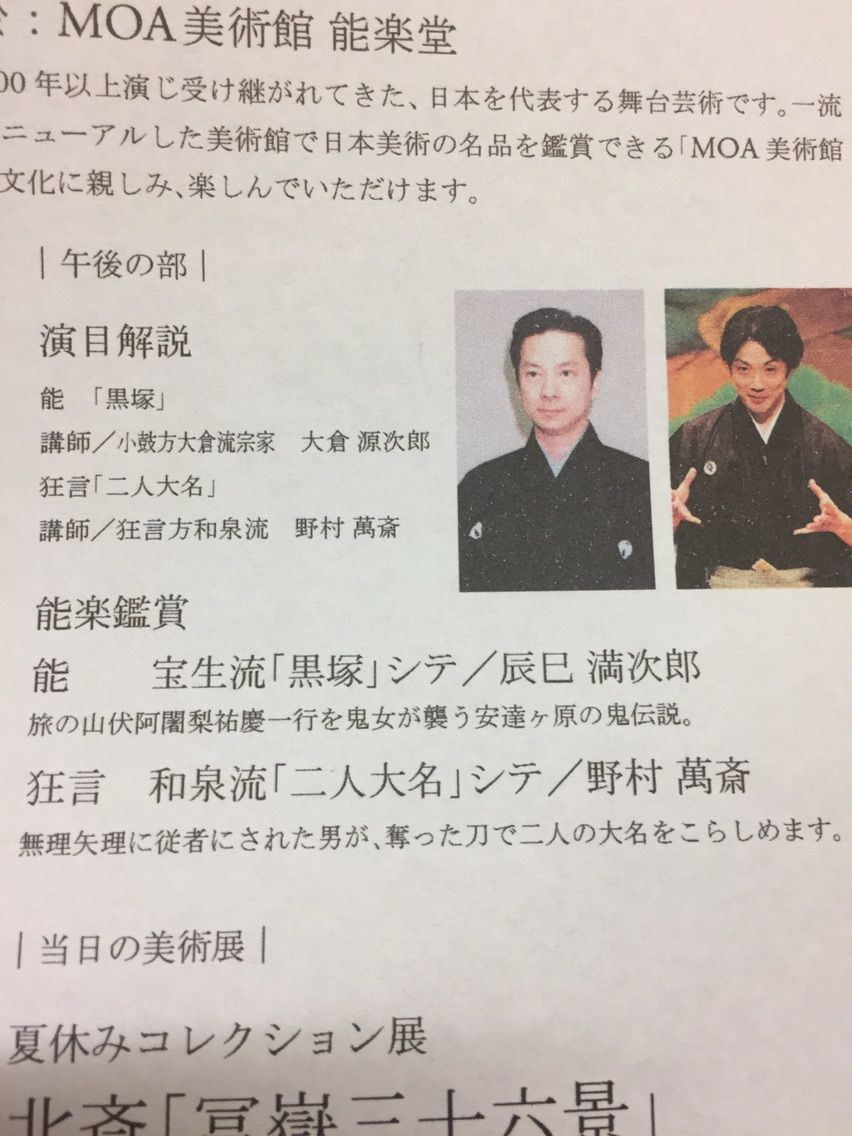 ：MOA美術館 能楽堂
00年以上演じ受け継がれてきた、日本を代表する舞台芸術です。一流
ニューアルした美術館で日本美術の名品を鑑賞できる「MOA美術館
文化に親しみ、楽しんでいただけます。
｜午後の部｜
演目解説
能　「黒塚」
講師／小鼓方大倉流宗家　大倉 源次郎
狂言「二人大名」
講師／狂言方和泉流　野村 萬斎
能楽鑑賞
能　　宝生流「黒塚」シテ／辰巳 満次郎
旅の山伏阿闍梨祐慶一行を鬼女が襲う安達ヶ原の鬼伝説。
狂言　和泉流「二人大名」シテ／野村 萬斎
無理矢理に従者にされた男が、奪った刀で二人の大名をこらしめます。
｜当日の美術展｜
夏休みコレクション展
北斎「冨嶽三十六景」